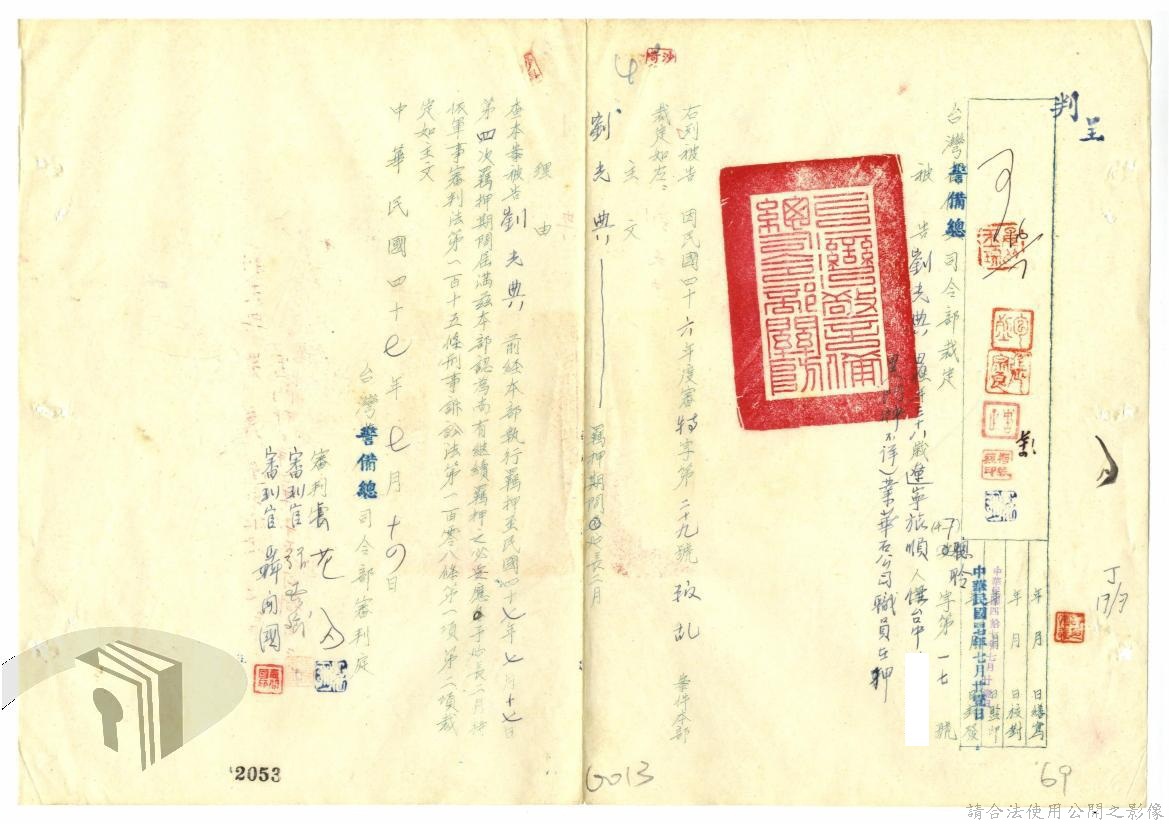 呈
判
年 月 日繕寫
年 月 日校對
中華民國四拾七年七月 日監印
中華民國四七年七月 日封發
台灣警備總司令部裁定
(47)聽聆字第一七號
被告 劉光典 男 年三十八歲遼寧旅順人住台中
門牌不詳)業華石公司職員在押
右列被告 因民國四十六年度審特字第二十九號 叛亂 案件本部
裁定如左:
主文
劉光典 羈押期間 延長二月
理由
查本案被告劉光典 前經本部執行羈押至民國四十七年七月十七日
第四次羈押期間屆滿茲本部認為尚有繼續羈押之必要應予延長二月特
依軍事審判法第一百十五條刑事訴訟法第一百零八條第一項第二項裁
定如主文
中華民國四十七年七月十四日
台灣警備總司令部審判庭
審判長
審判官
審判官 聶開國
2053
6013
69
請合法使用公開之影像